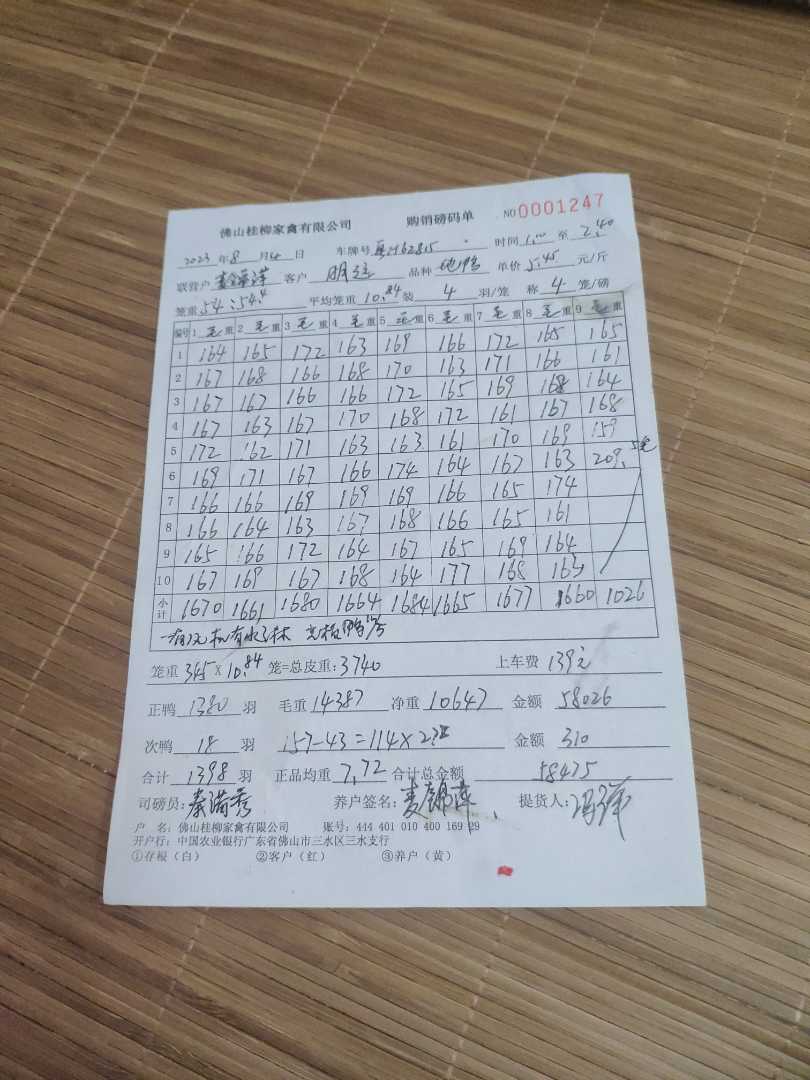 佛山桂柳家禽有限公司 购销磅码单 NO 0001247
2023 年 8 月 4 日 车牌号 时间 1.00 至 2.40
联营户 客户 品种 单价 5.45 元/斤
笼重 54:54.4 平均笼重 10.84 装 4 羽/笼 称 4 笼/磅
编号 1 毛重 2 毛重 3 毛重 4 毛重 5 毛重 6 毛重 7 毛重 8 毛重 9 毛重
1 164 165 172 163 169 166 172 165 165
2 167 168 166 168 170 163 171 166 161
3 167 167 166 166 172 165 169 168 164
4 167 163 167 170 168 172 161 167 168
5 172 162 171 163 163 161 170 169 159
6 169 171 167 166 174 164 167 163 209. 5笼
7 166 166 169 169 169 166 165 174
8 166 164 163 167 168 166 165 161
9 165 166 172 164 167 165 169 164
10 167 169 167 168 164 177 168 163
小计 1670 1661 1680 1664 1684 1665 1677 1660 1026
笼重 345 X 10.84 笼=总皮重: 3740 上车费 139元
正鸭 1380 羽 毛重 14387 净重 10647 金额 58026
次鸭 18 羽 157-43=114X 金额 310
合计 1398 羽 正品均重 7.72 合计总金额 58475
司磅员: 秦满秀 养户签名: 提货人:
户 名: 佛山桂柳家禽有限公司 账号: 444 401 010 400 169 29
开户行: 中国农业银行广东省佛山市三水区三水支行
①存根(白) ②客户(红) ③养户(黄)